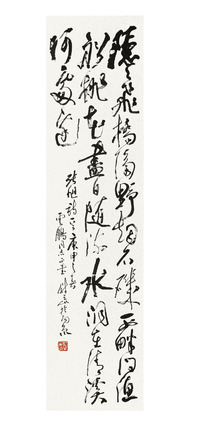 隱隱飛橋隔野烟石磯西畔問漁
船桃花盡日隨流水洞在清溪
何處邊
張旭詩 庚申之春